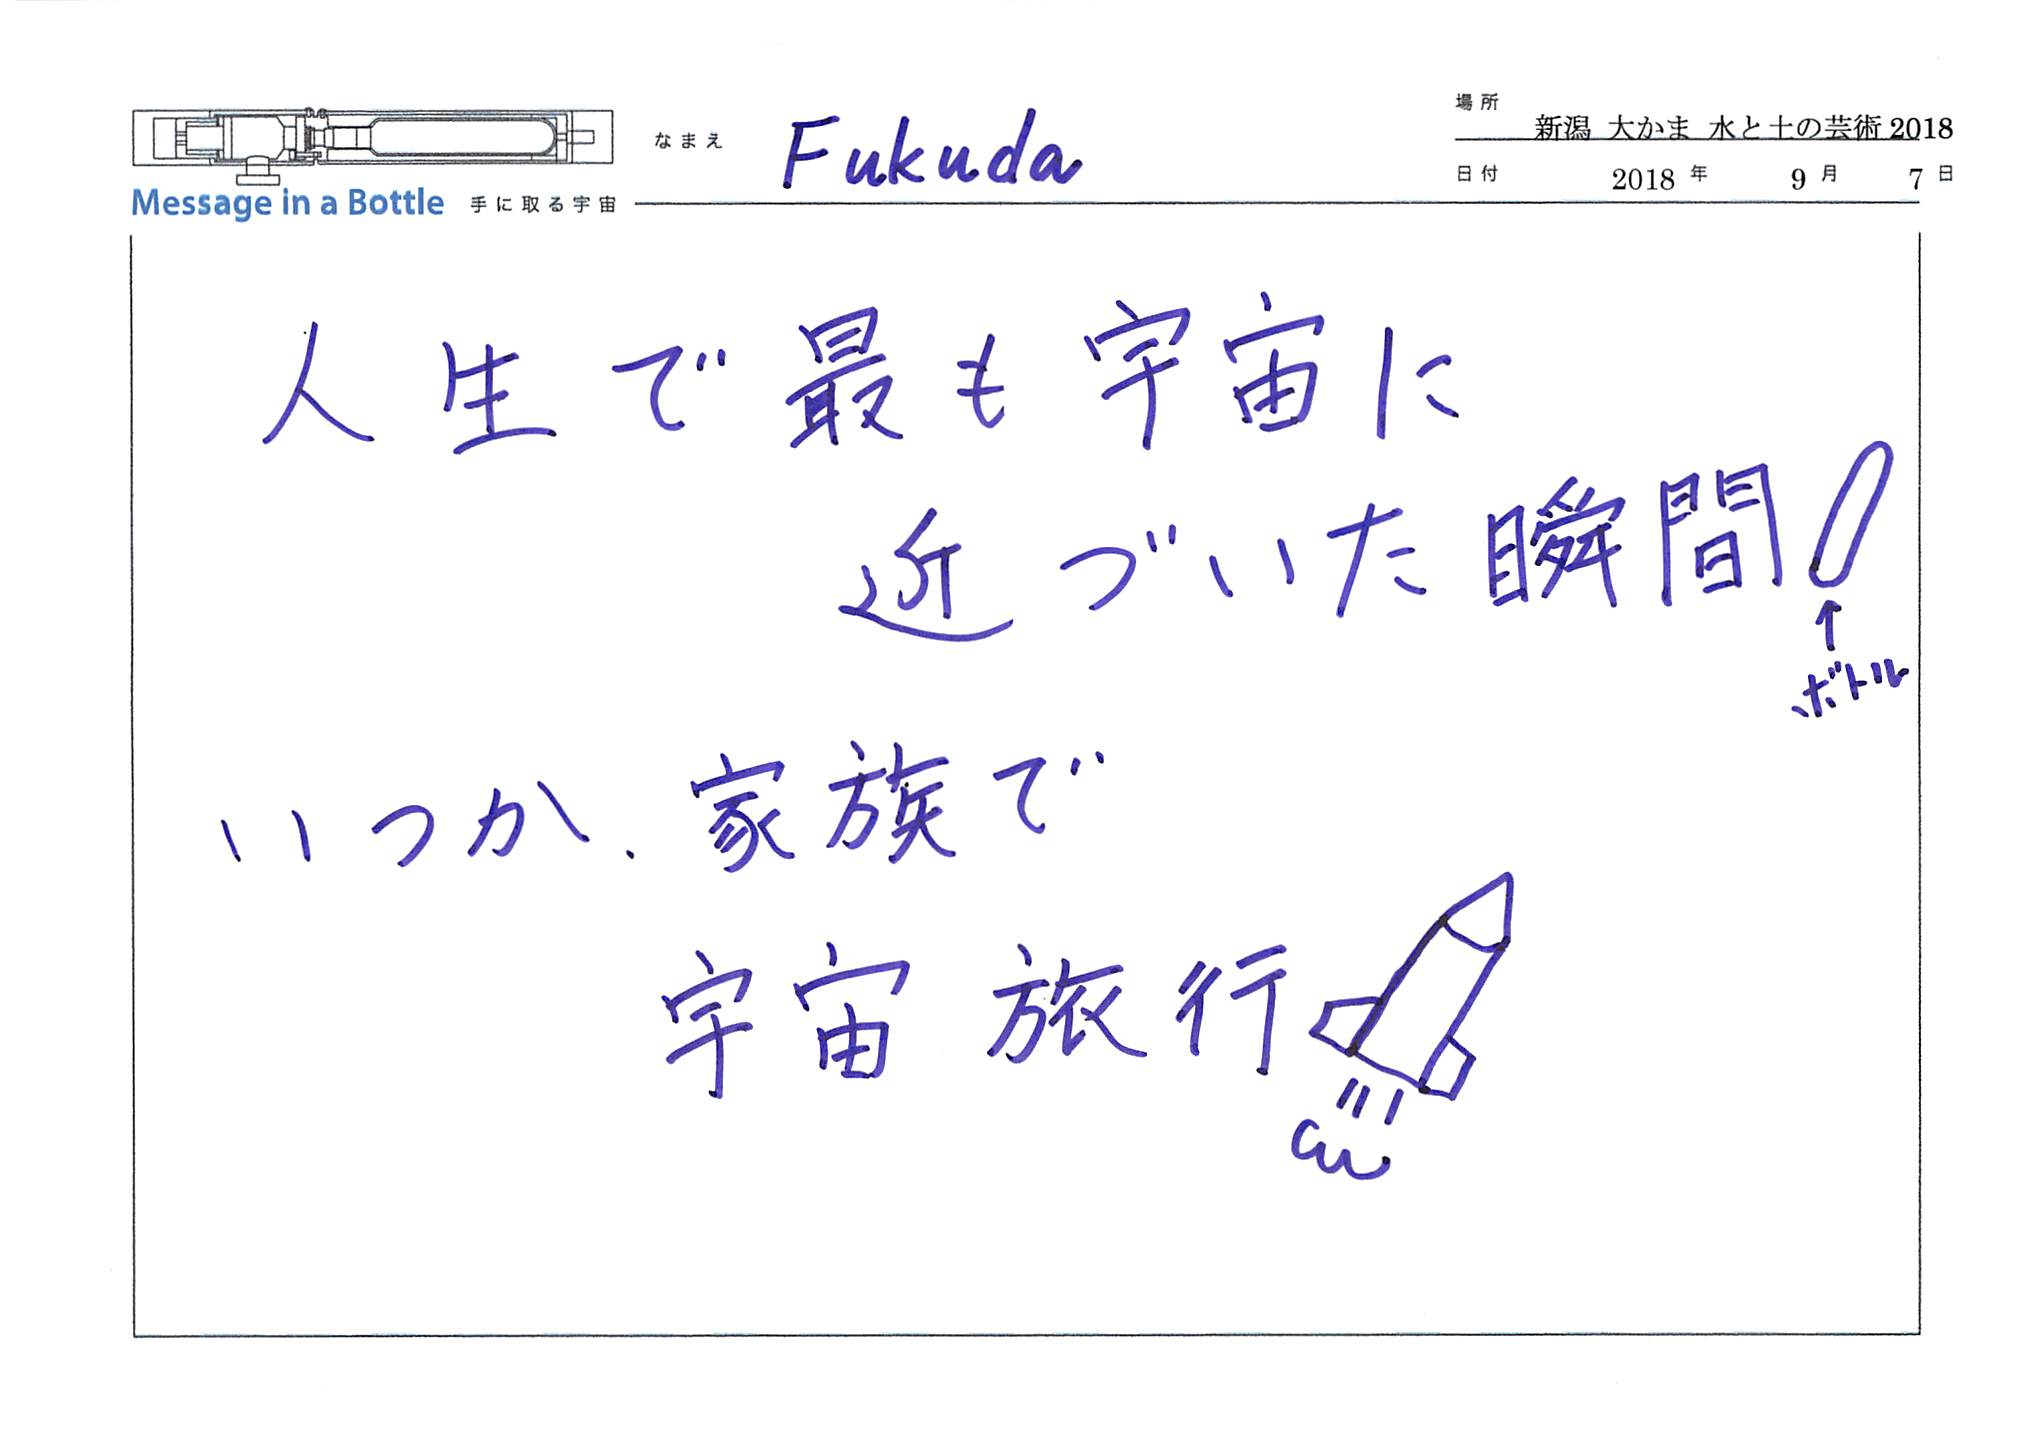 場所 新潟 大かま 水と土の芸術 2018
なまえ Fukuda
日付 2018 年 9 月 7 日
Message in a Bottle 手に取る宇宙
人生で最も宇宙に
近づいた瞬間
ボトル
いつか、家族で
宇宙旅行